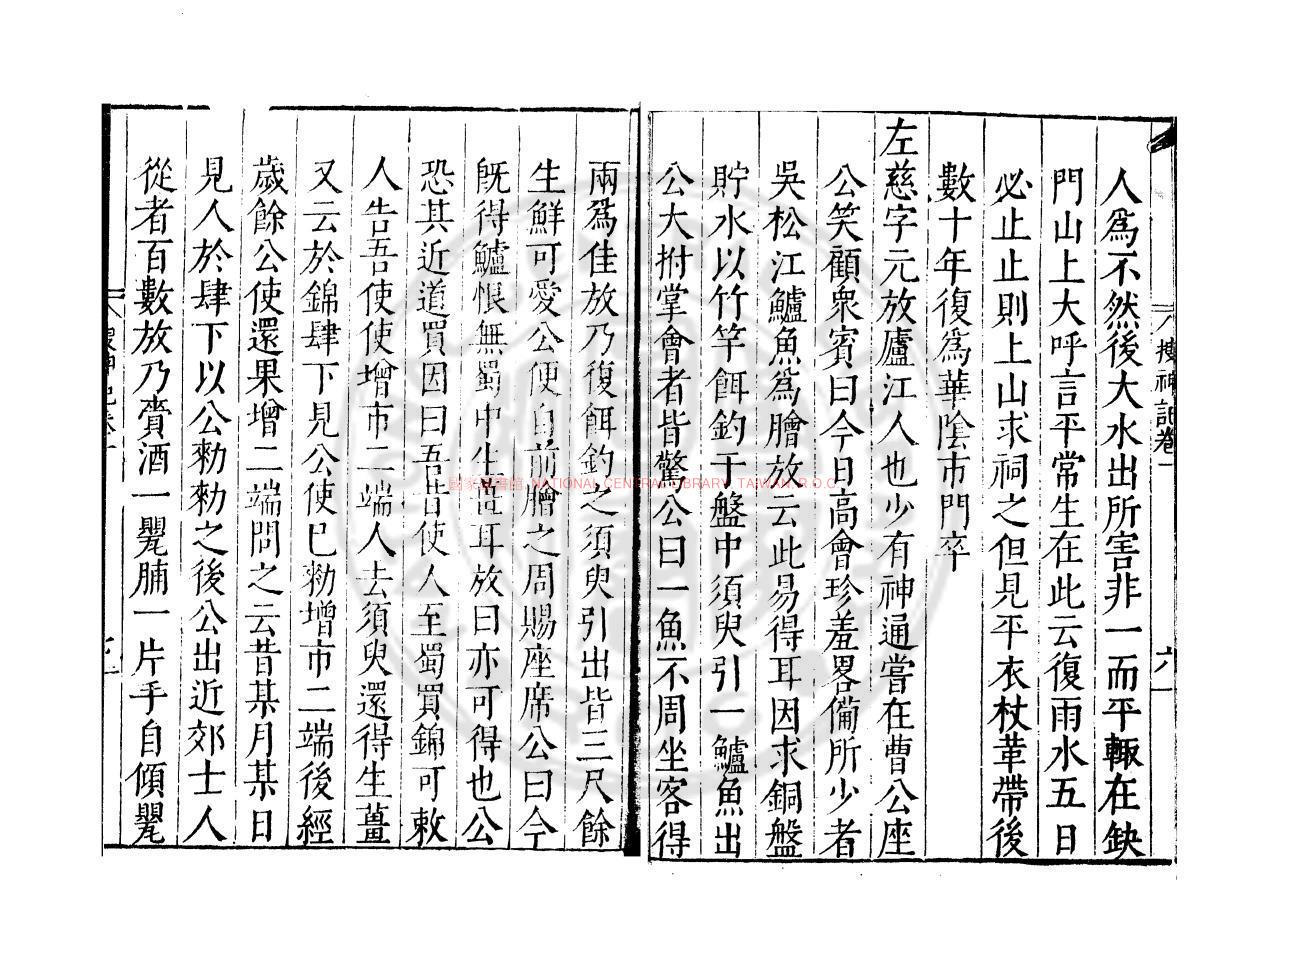 搜神記卷一
六
人為不然後大水出所害非一而平輙在缺
門山上大呼言平常生在此云復雨水五日
必止止則上山求祠之但見平衣杖革帶後
數十年復為華陰市門卒
左慈字元放廬江人也少有神通嘗在曹公座
公笑顧衆賓曰今日高會珍羞畧備所少者
吳松江鱸魚為膾放云此易得耳因求銅盤
貯水以竹竿餌釣于盤中須臾引一鱸魚出
公大拊掌會者皆驚公曰一魚不周坐客得
兩為佳放乃復餌釣之須臾引出皆三尺餘
生鮮可愛公便自前膾之周賜座席公曰今
旣得鱸恨無蜀中生薑耳放曰亦可得也公
恐其近道買因曰吾昔使人至蜀買錦可敕
人告吾使使增市二端人去須臾還得生薑
又云於錦肆下見公使已勑增市二端後經
歲餘公使還果增二端問之云昔某月某日
見人於肆下以公勑勑之後公出近郊士人
從者百數放乃賫酒一甖脯一片手自傾甖
國家圖書館 NATIONAL CENTRAL LIBRARY, TAIWAN, R.O.C.